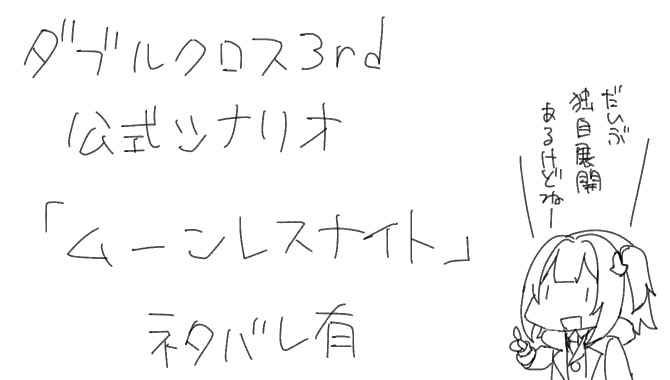 ダブルクロス3rd
公式シナリオ
「ムーンレスナイト」
ネタバレ有
だいぶ
独自展開
あるけどねー